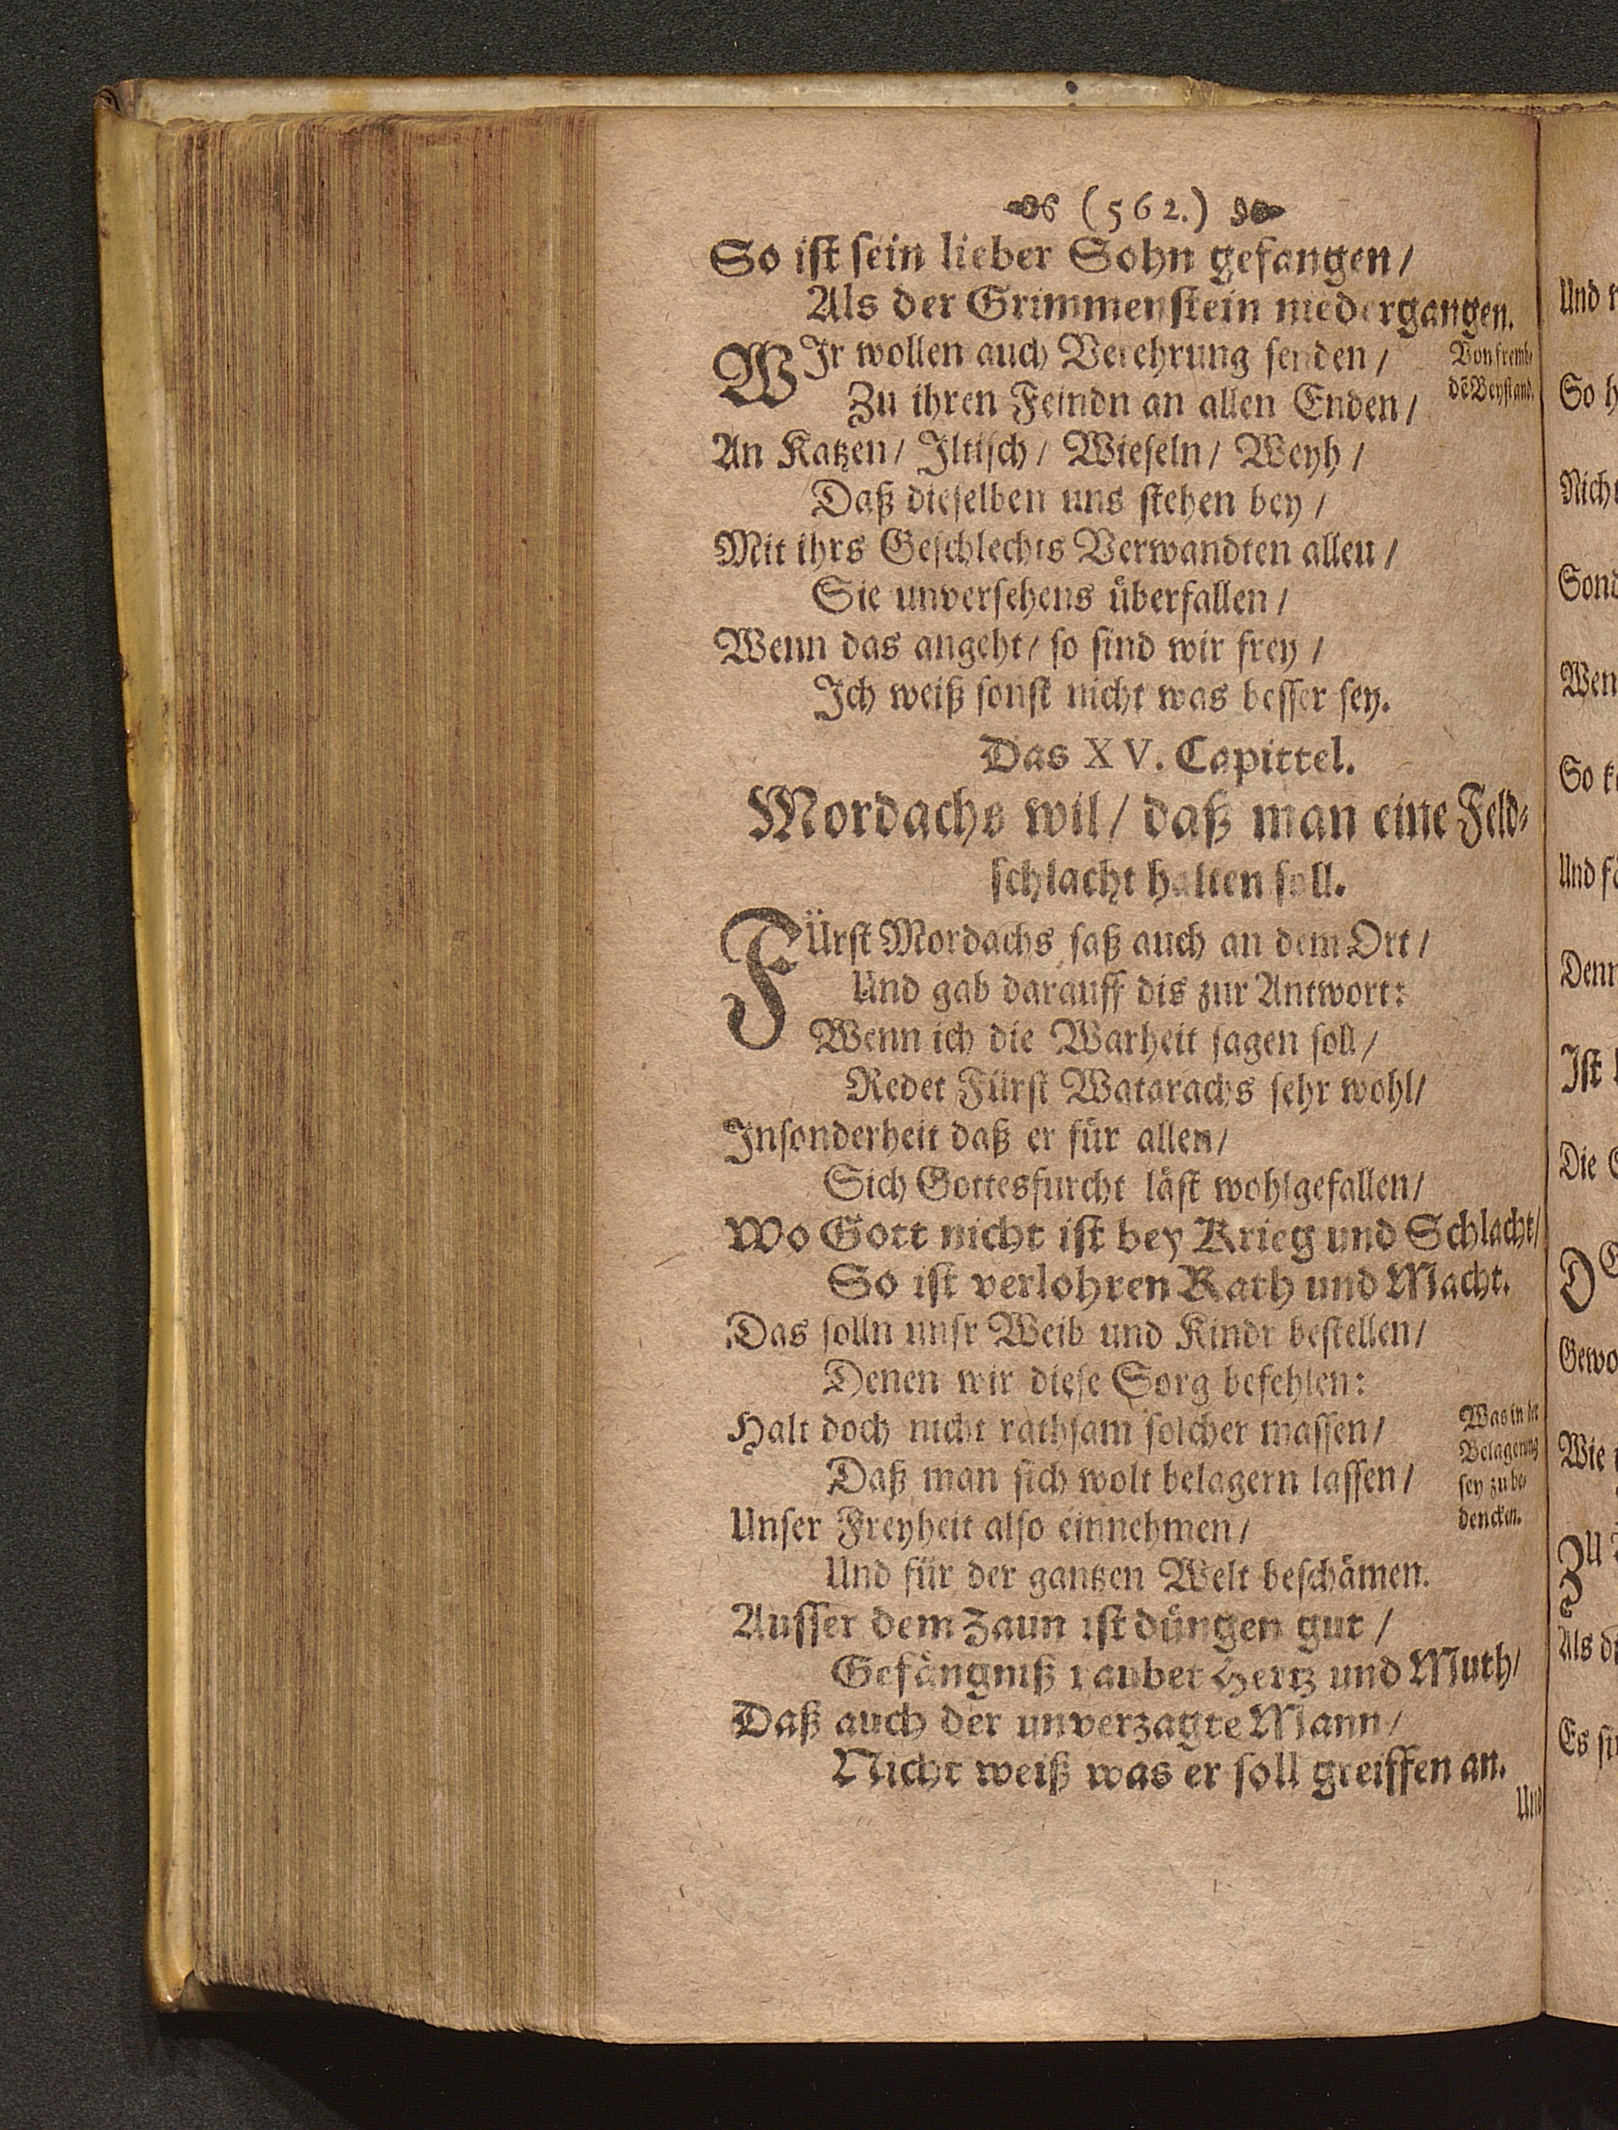 (562.)
So ist sein lieber Sohn gefangen/
Als der Grimmenstein niedergangen.
WIr wollen auch Verehrung senden/
Zu ihren Feindn an allen Enden/
Von fremb-
dē Beystand.
An Katzen/ Iltisch/ Wieseln/ Weyh/
Daß dieselben uns stehen bey/
Mit ihrs Geschlechts Verwandten allen/
Sie unversehens uͤberfallen/
Wenn das angeht/ so sind wir frey/
Ich weiß sonst nicht was besser sey.
Das XV. Capittel.
Mordachs wil/ daß man eine Feld-
schlacht halten soll.
FÜrst Mordachs saß auch an dem Ort/
Und gab darauff dis zur Antwort:
Wenn ich die Warheit sagen soll/
Redet Fürst Watarachs sehr wohl/
Insonderheit daß er für allen/
Sich Gottesfurcht läst wohlgefallen/
Wo Gott nicht ist bey Krieg und Schlacht/
So ist verlohren Rath und Macht.
Das solln unsr Weib und Kindr bestellen/
Denen wir diese Sorg befehlen:
Halt doch nicht rathsam solcher massen/
Daß man sich wolt belagern lassen/
Was in der
Belagerung
sey zu be-
dencken.
Unser Freyheit also einnehmen/
Und für der gantzen Welt beschämen.
Ausser dem Zaun ist düngen gut/
Gefängniß raubet Hertz und Muth/
Daß auch der unverzagte Mann/
Nicht weiß was er soll greiffen an.
Und
Und
So
Nicht
Wen
So
Und
Denn
Ist
Die
Wie
Zu
Als
Es